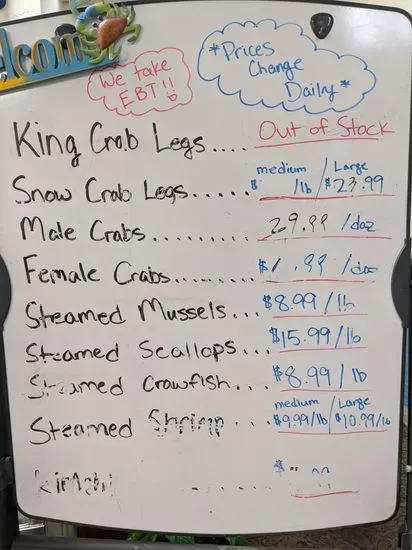 elcome
We take
EBT!!
*Prices
Change
Daily*
King Crab Legs.... Out of Stock
Snow Crab Legs..... medium $ /lb / Large $23.99
Male Crabs.......... 29.99 /doz
Female Crabs........ /doz
Steamed Mussels... $8.99/lb
Steamed Scallops... $15.99/lb
Steamed Crawfish... $8.99/lb
Steamed Shrimp... medium $9.99/lb / Large $10.99/lb